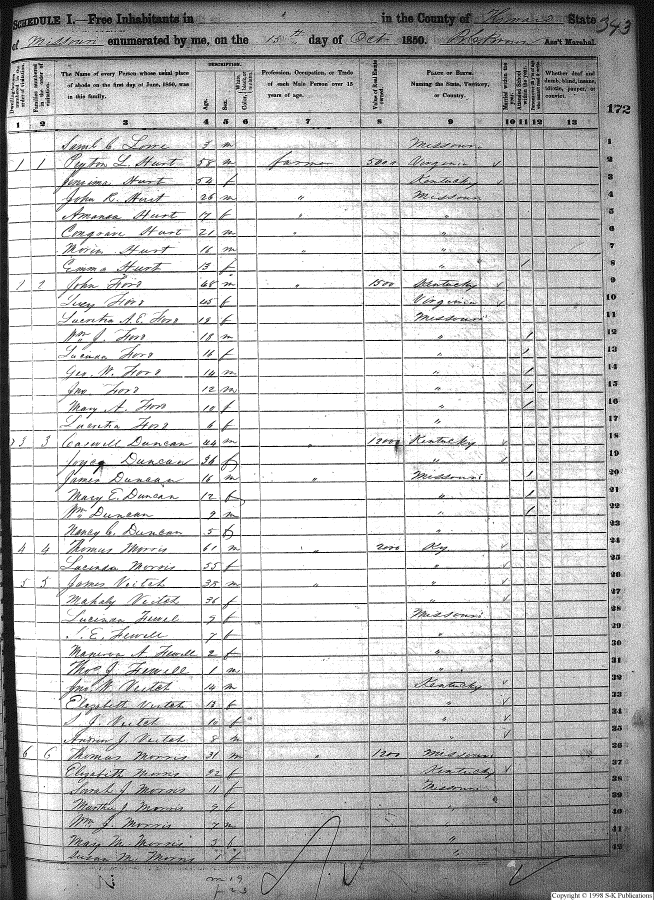 SCHEDULE I.—Free Inhabitants in in the County of Howard State 343
of Missouri enumerated by me, on the 15th day of Oct 1850. Ass't Marshal.
Dwelling-houses numbered in the order of visitation.
Families numbered in the order of visitation.
The Name of every Person whose usual place of abode on the first day of June, 1850, was in this family.
DESCRIPTION.
Age.
Sex.
White, black, or mulatto.
Color,
Profession, Occupation, or Trade of each Male Person over 15 years of age.
Value of Real Estate owned.
Place of Birth. Naming the State, Territory, or Country.
Married within the year.
Attended School within the year.
Whether deaf and dumb, blind, insane, idiotic, pauper, or convict.
172
1 2 3 4 5 6 7 8 9 10 11 12 13
Saml C. Lowe 3 m Missouri 1
1 1 Peyton L. Hurt 58 m farmer 5000 Virginia 2
Jemima Hurt 54 f Kentucky 3
John R. Hurt 26 m " Missouri 4
Amanda Hurt 17 f " " 5
Congrave Hurt 21 m " " 6
Hurt 16 m " " 7
Emma Hurt 13 f " 1 8
1 2 John Ford 48 m " 1500 Kentucky 9
Lucy Ford 45 f Virginia 10
Lucretia A. E. Ford 18 f Missouri 11
Wm J. Ford 18 m " 1 12
Lucinda Ford 16 f " 1 13
Geo. W. Ford 14 m " 1 14
Jno. Ford 12 m " 1 15
Mary A. Ford 10 f " 1 16
Lucretia Ford 6 f " 17
3 3 Caswell Duncan 44 m " 12000 Kentucky 18
Joyce Duncan 36 f " 19
James Duncan 16 m " Missouri 1 20
Mary E. Duncan 12 f " 1 21
Wm Duncan 9 m " 1 22
Nancy C. Duncan 5 f " 23
4 4 Thomas Morris 61 m " 2000 Ky 24
Lucinda Morris 55 f " 25
5 5 James Veitch 38 m " " 26
Mahaly Veitch 36 f " 27
Lucinda Fewel 9 f Missouri 28
E. Fewell 7 f " 29
Manerva A. Fewell 2 f " 30
Thos J. Fewell 1 m " 31
Jno. W. Veitch 14 m Kentucky 32
Elizabeth Veitch 13 f " 33
S. J. Veitch 10 f " 34
Andrew J. Veitch 8 m " 35
6 6 Thomas Morris 31 m " 1200 Missouri 36
Elizabeth Morris 32 f Kentucky 37
Sarah J. Morris 11 f Missouri 38
Martha J. Morris 9 f " 39
Wm J. Morris 7 m " 40
Mary M. Morris 3 f " 41
Susan M. Morris 1 f " 42
m 19
f 23
Copyright © 1998 S-K Publications